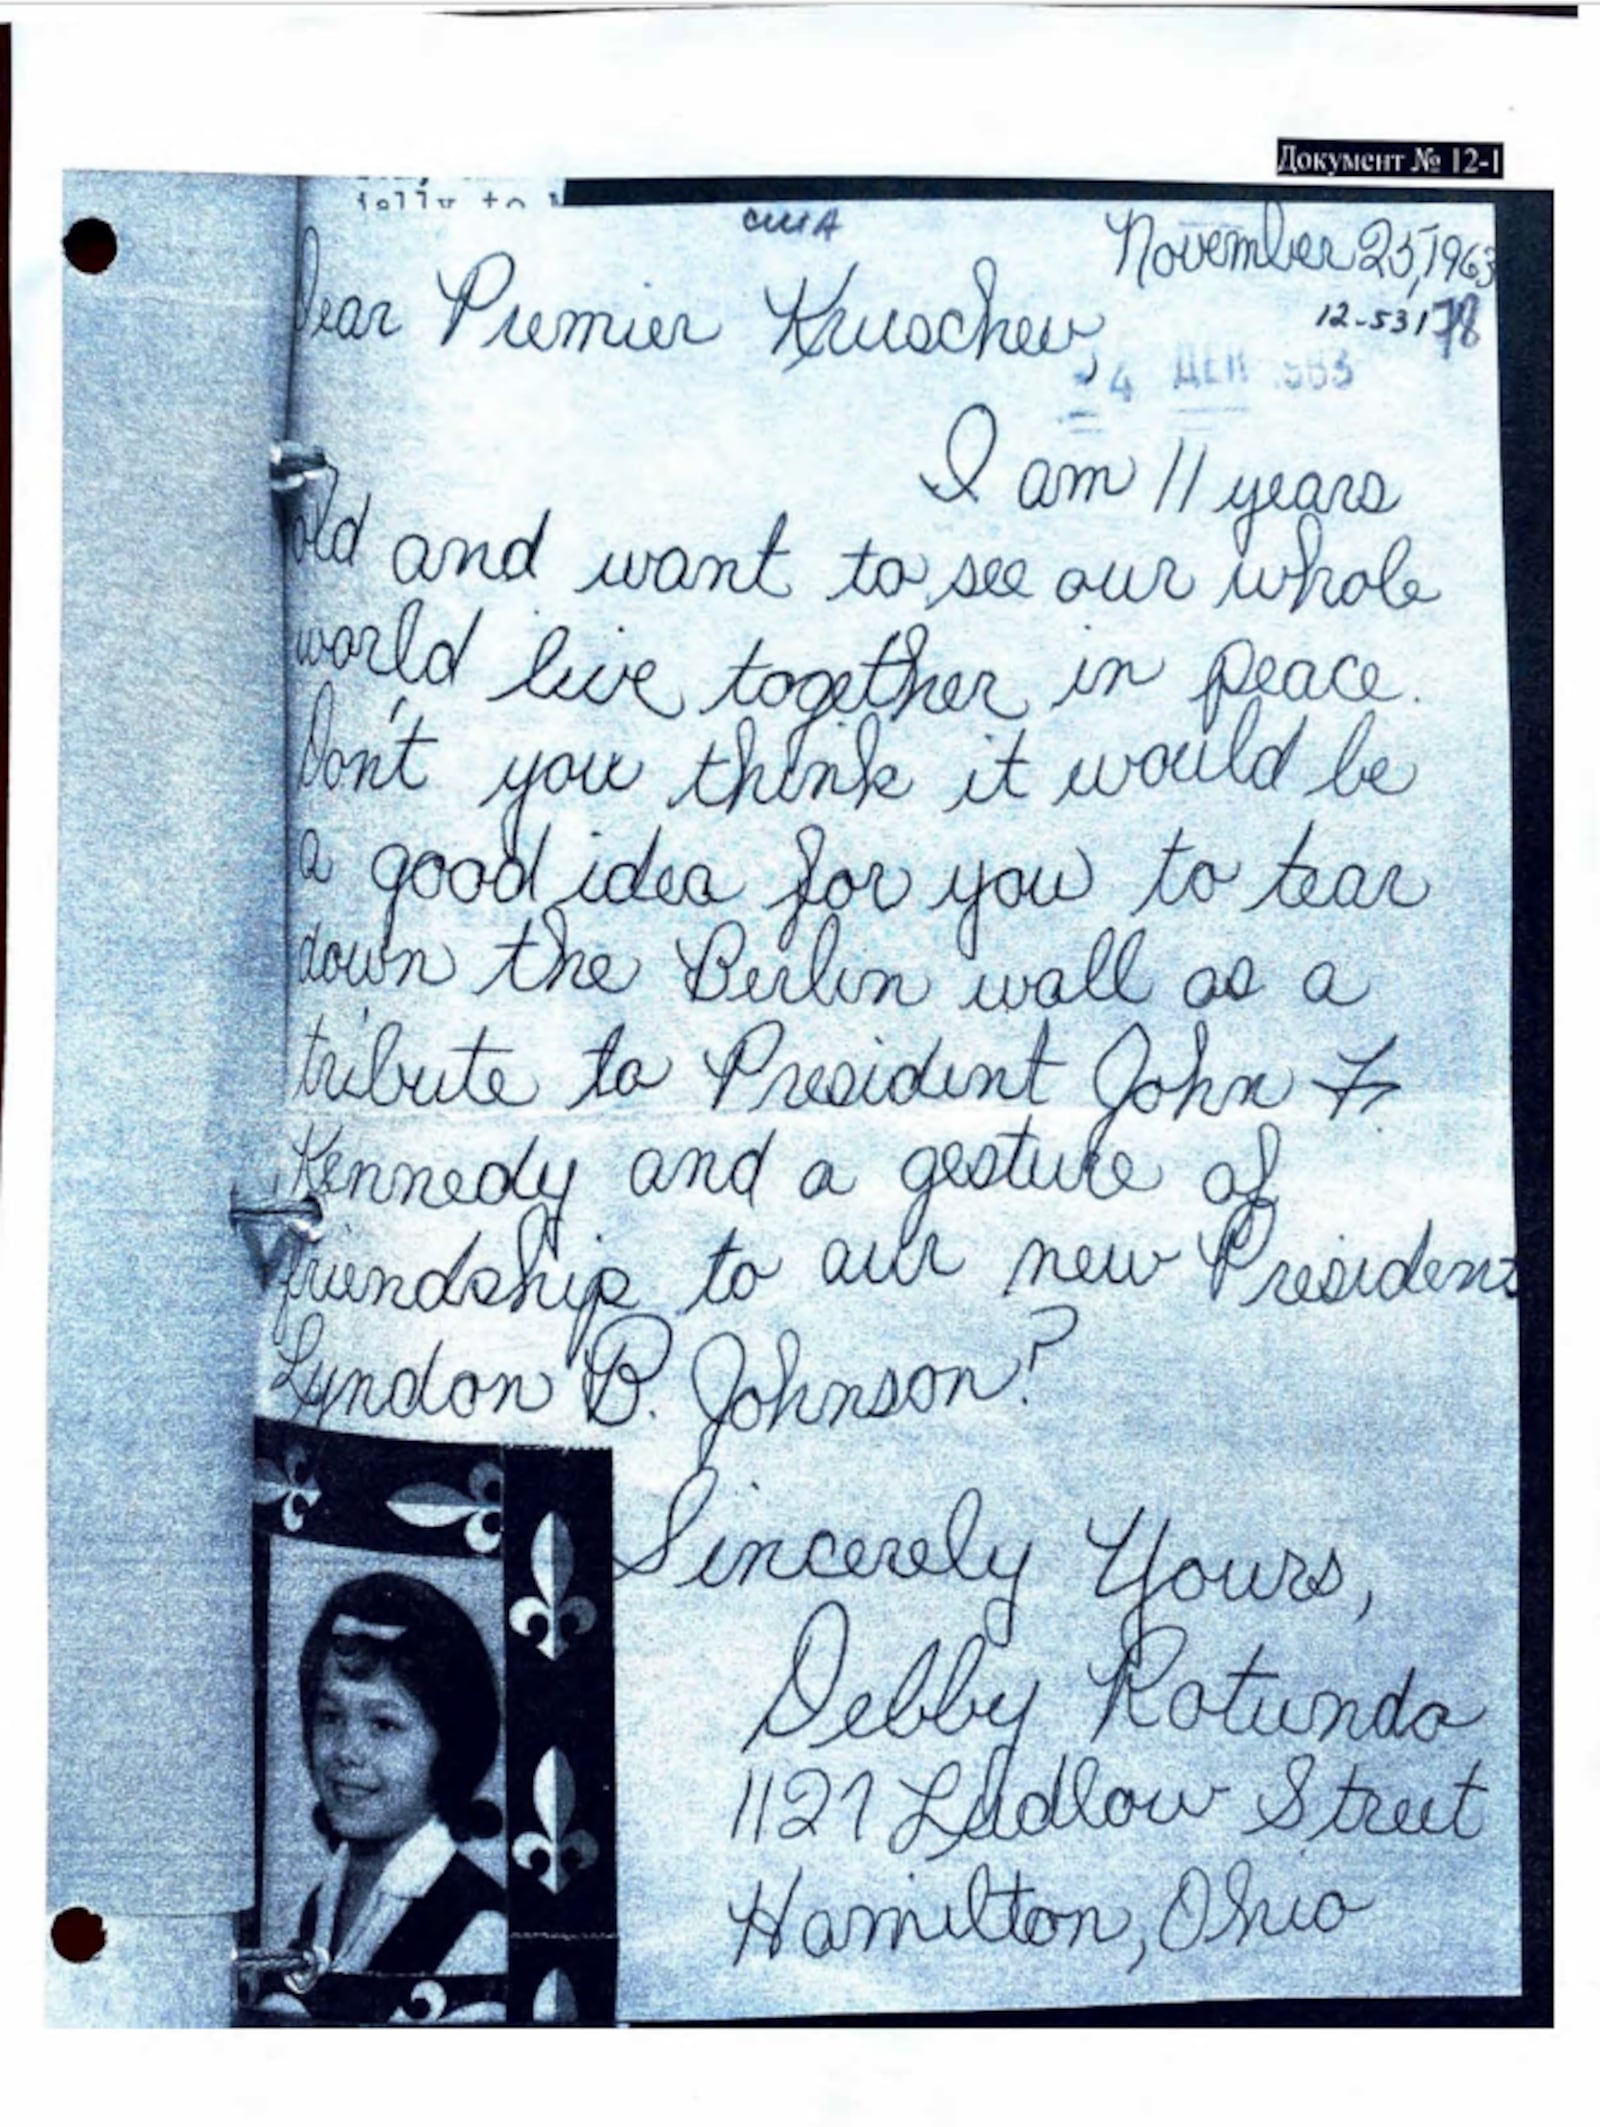 Документ № 12-1
jelly to
США
November 25, 1963
Dear Premier Kruschev,
12-531 78
4 ДЕК 1963
I am 11 years
old and want to see our whole
world live together in peace.
Don't you think it would be
a good idea for you to tear
down the Berlin wall as a
tribute to President John F.
Kennedy and a gesture of
friendship to our new President
Lyndon B. Johnson?
Sincerely Yours,
Debby Rotundo
1127 Ludlow Street
Hamilton, Ohio